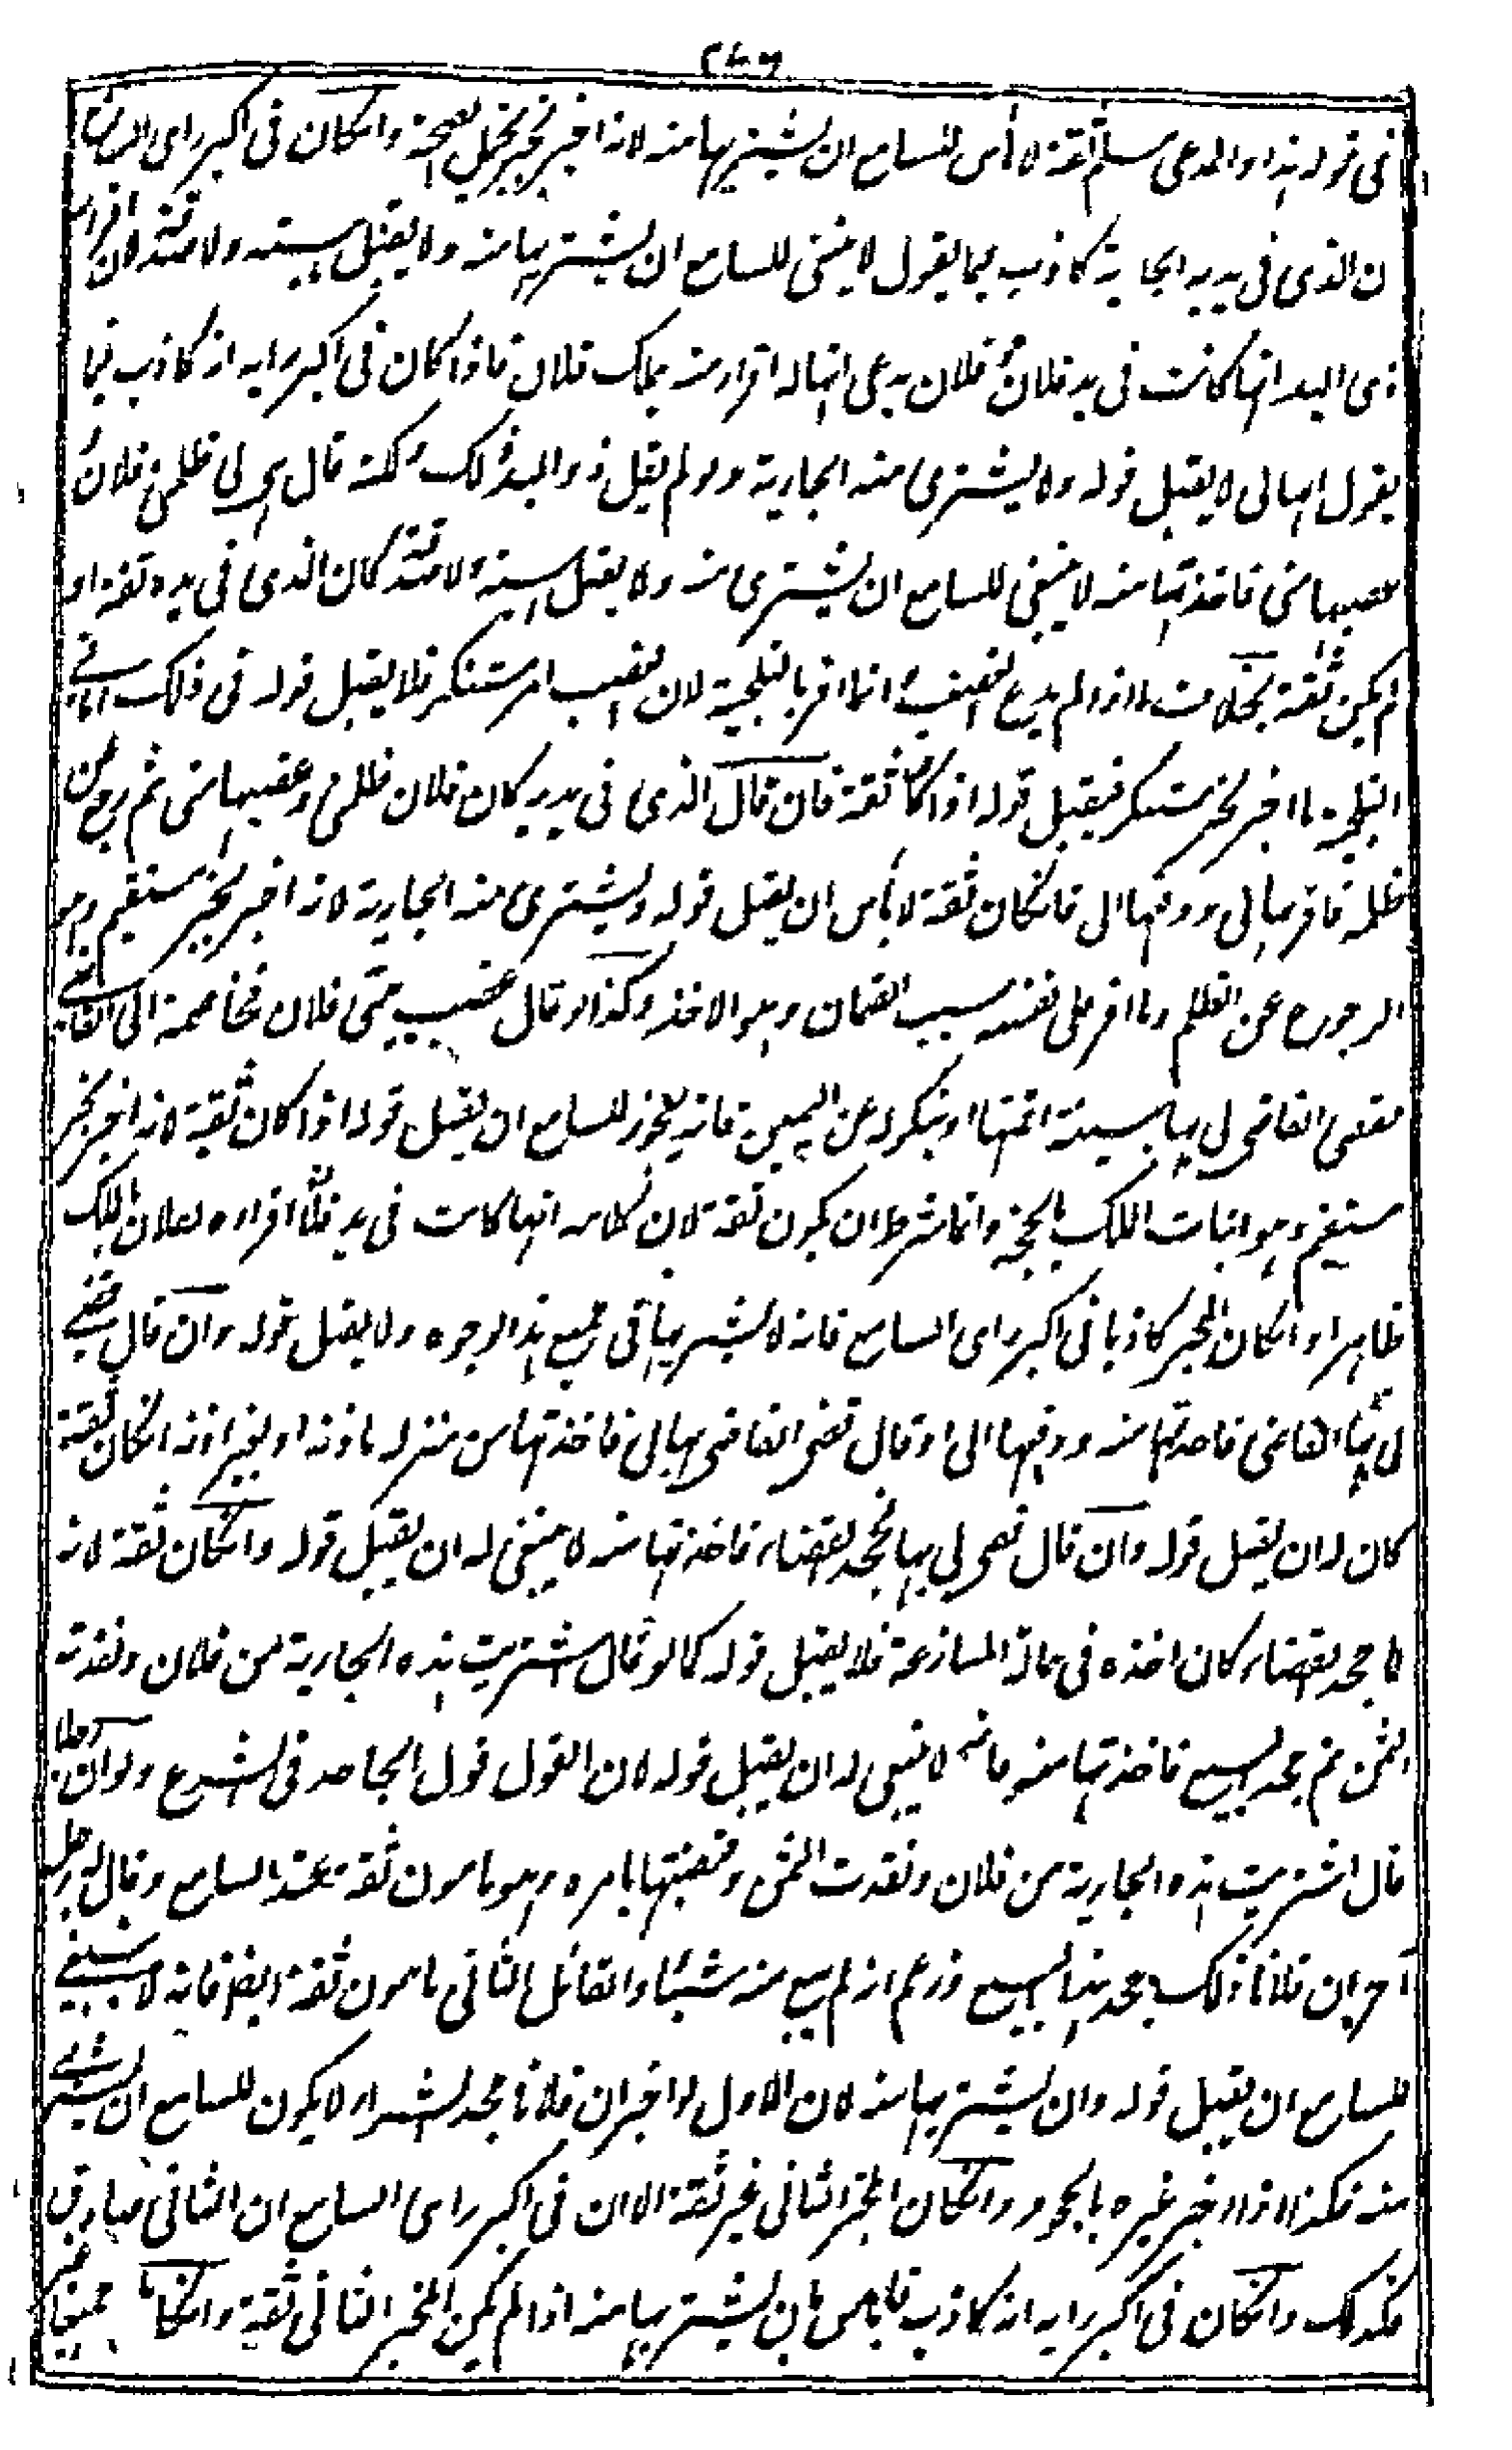 ٢٤٦
في قوله هذا والمدعي مسلم ثقة لا بأس للسامع ان يشتريها منه لانه اخبر بخبر يحتمل الصحة وانكان في اكبر راي السامع
ان الذي في يديه الجارية كاذب فيما يقول لا ينبغي للسامع ان يشتريها منه ولا يقبل هبته ولا صدقته لان اقرار
ذي اليد انها كانت في يد فلان وفلان يدعي انها له اقرار منه بملك فلان فاذا كان في اكبر رايه انه كاذب فيما
يقول انها لي لا يقبل قوله ولا يشتري منه الجارية ولو لم يقل ذو اليد ذلك ولكنه قال هي لي ظلمني فلان و
غصبها مني فاخذتها منه لا ينبغي للسامع ان يشتري منه ولا يقبل هبته ولا صدقته كان الذي في يده ثقة او
لم يكن ثقة بخلاف ما اذا لم يدع الغصب وانما اقر بالتلجية لان الغصب امر مستنكر فلا يقبل قوله في ذلك اما في
التلجية ما اخبر بخبر مستنكر فيقبل قوله اذا كان ثقة فان قال الذي في يديه كان فلان ظلمني وغصبها مني ثم رجع عن
ظلمه فاقر بها لي ودفعها الي فانكان ثقة لا بأس ان يقبل قوله ويشتري منه الجارية لانه اخبر بخبر مستقيم وهو
الرجوع عن الظلم وما اقر على نفسه بسبب الضمان وهو الاخذ وكذا لو قال غصب مني فلان فخاصمته الى القاضي
فقضى القاضي لي بها ببينة اقمتها او بنكوله عن اليمين فانه يجوز للسامع ان يقبل قوله اذا كان ثقة لانه اخبر بخبر
مستقيم وهو اثبات الملك بالحجة وانما شرط ان يكون ثقة لان كلامه انها كانت في يد فلان اقراره لفلان بالملك
ظاهرا وانكان المخبر كاذبا في اكبر راي السامع فانه لا يشتريها في جميع هذه الوجوه ولا يقبل قوله وان قال قضى
لي بها القاضي فاخذتها منه ودفعها الي او قال قضى القاضي بها لي فاخذتها من منزله باذنه او بغير اذنه انكان ثقة
كان له ان يقبل قوله وان قال قضى لي بها فجحد القضاء فاخذتها منه لا ينبغي له ان يقبل قوله وانكان ثقة لانه
لما جحد القضاء كان اخذه في حالة المنازعة فلا يقبل قوله كما لو قال اشتريت هذه الجارية من فلان ونقدته
الثمن ثم جحد البيع فاخذتها منه فانه لا ينبغي له ان يقبل قوله لان القول قول الجاحد في الشرع ولو ان رجلا
قال اشتريت هذه الجارية من فلان ونقدت الثمن وقبضتها بامره وهو مامون ثقة عند السامع وقال له رجل
آخر ان فلانا ذلك جحد هذا البيع وزعم انه لم يبع منه شيئا والقائل الثاني مامون ثقة ايضا فانه لا ينبغي
للسامع ان يقبل قوله وان يشتريها منه لان الاول لو اخبر ان فلانا جحد الشراء لا يكون للسامع ان يشتري
منه فكذا اذا اخبر غيره بالجحود وانكان المخبر الثاني غير ثقة الا ان في اكبر راي السامع ان الثاني صادق
فكذلك وانكان في اكبر رايه انه كاذب فلا بأس بان يشتريها منه اذا لم يكن المخبر الثاني ثقة وانكانا جميعا غير